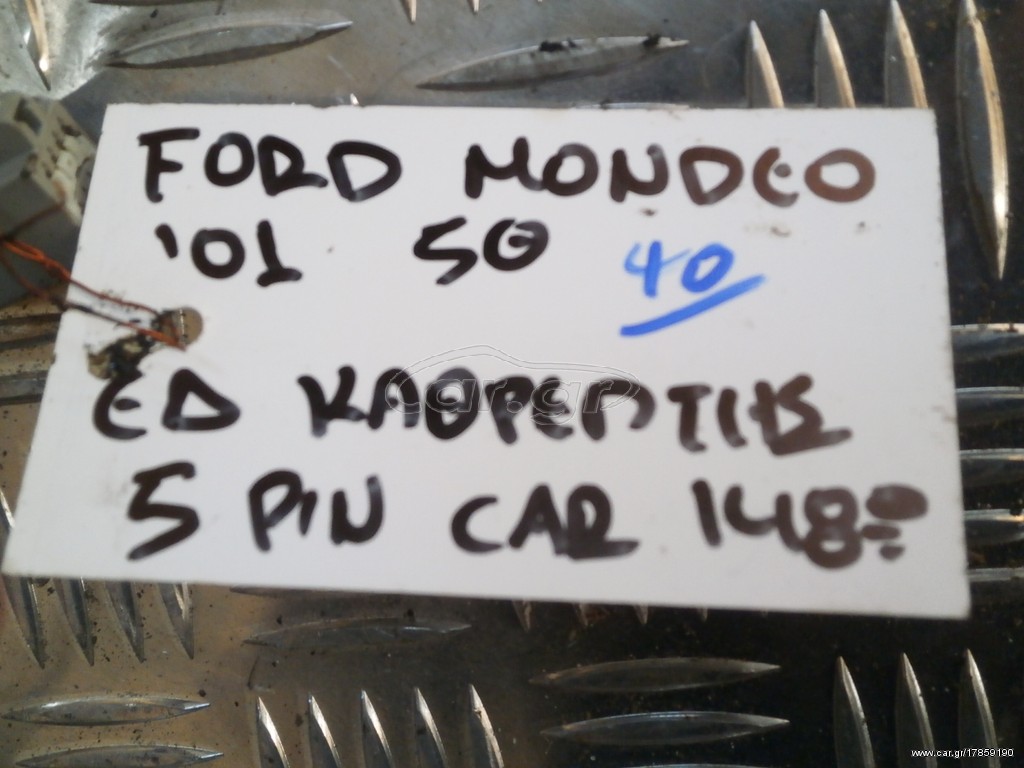 FORD MONDEO
'01 5Θ 40
ΕΔ ΚΑΘΡΕΠΤΗΣ
5 PIN CAR
car.gr
www.car.gr/17859190